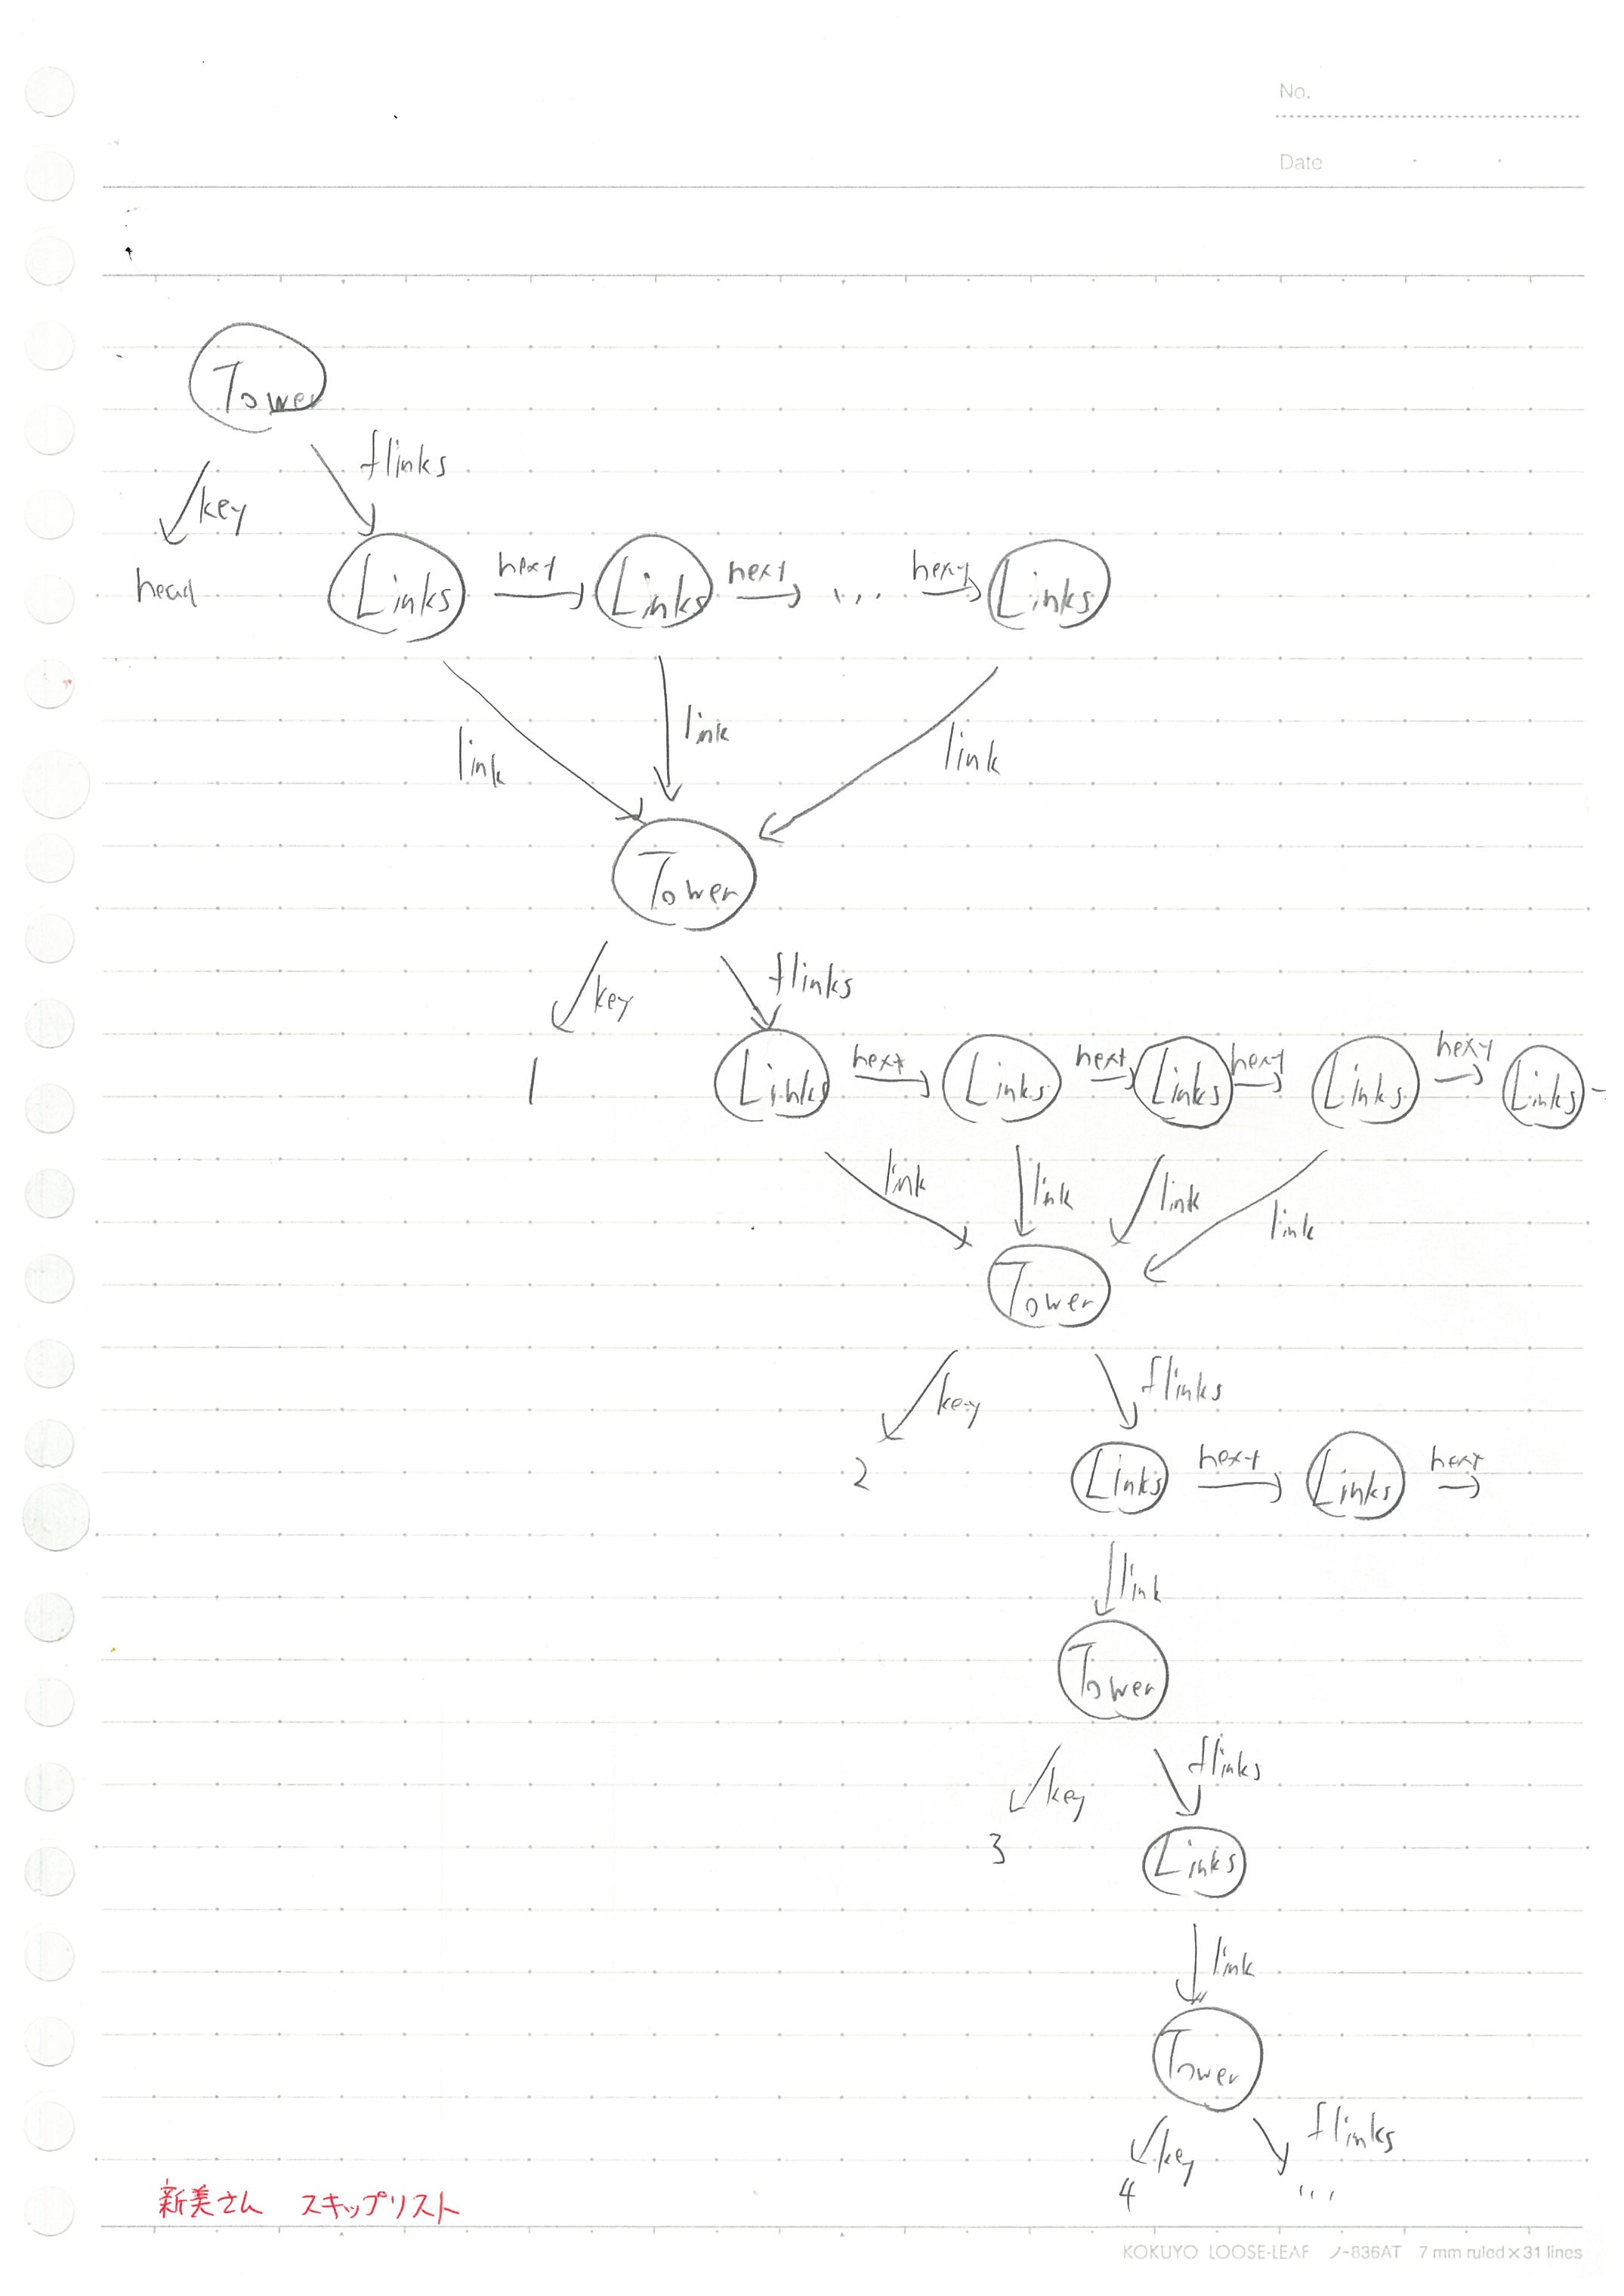 No.
Date
Tower
flinks
key
head
Links next Links next ... next Links
link link link
Tower
key flinks
1
Links next Links next Links next Links next Links
link link link link
Tower
key flinks
2
Links next Links next
link
Tower
key flinks
3
Links
link
Tower
key flinks
4 ...
新美さん スキップリスト
KOKUYO LOOSE-LEAF ノ-836AT 7 mm ruled×31 lines